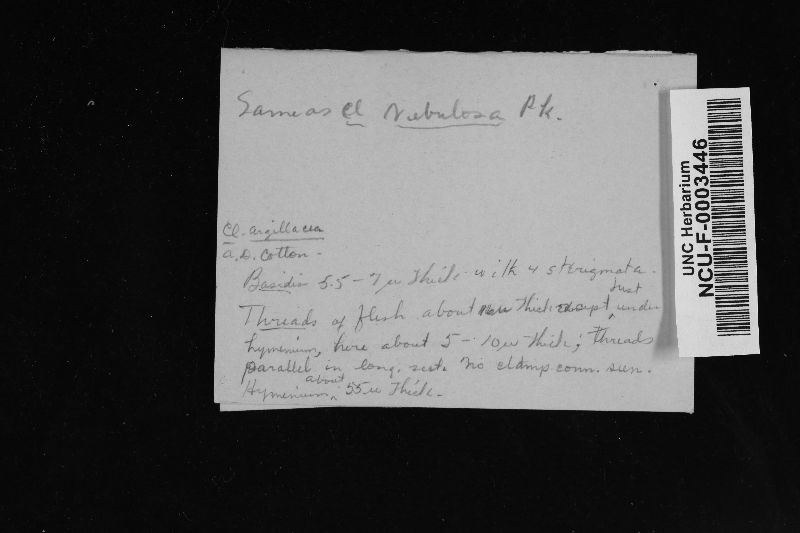 Same as Cl Nebulosa Pk.
Cl. argillacea
A. D. Cotton -
Basidia 5.5-7µ thick with 4 sterigmata.
Threads of flesh about thick except just under
hymenium, here about 5-10µ thick; threads
parallel in long. sect. No clamp conn. seen.
Hymenium about 55µ thick.
UNC Herbarium
NCU-F-0003446